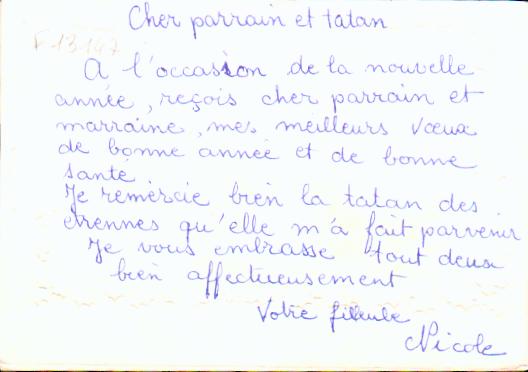 Cher parrain et tatan
F 13147
A l'occasion de la nouvelle
année, reçois cher parrain et
marraine, mes meilleurs vœux
de bonne année et de bonne
santé
Je remercie bien la tatan des
étrennes qu'elle m'a fait parvenir
Je vous embrasse tout deux
bien affectueusement
Votre filleule
Nicole